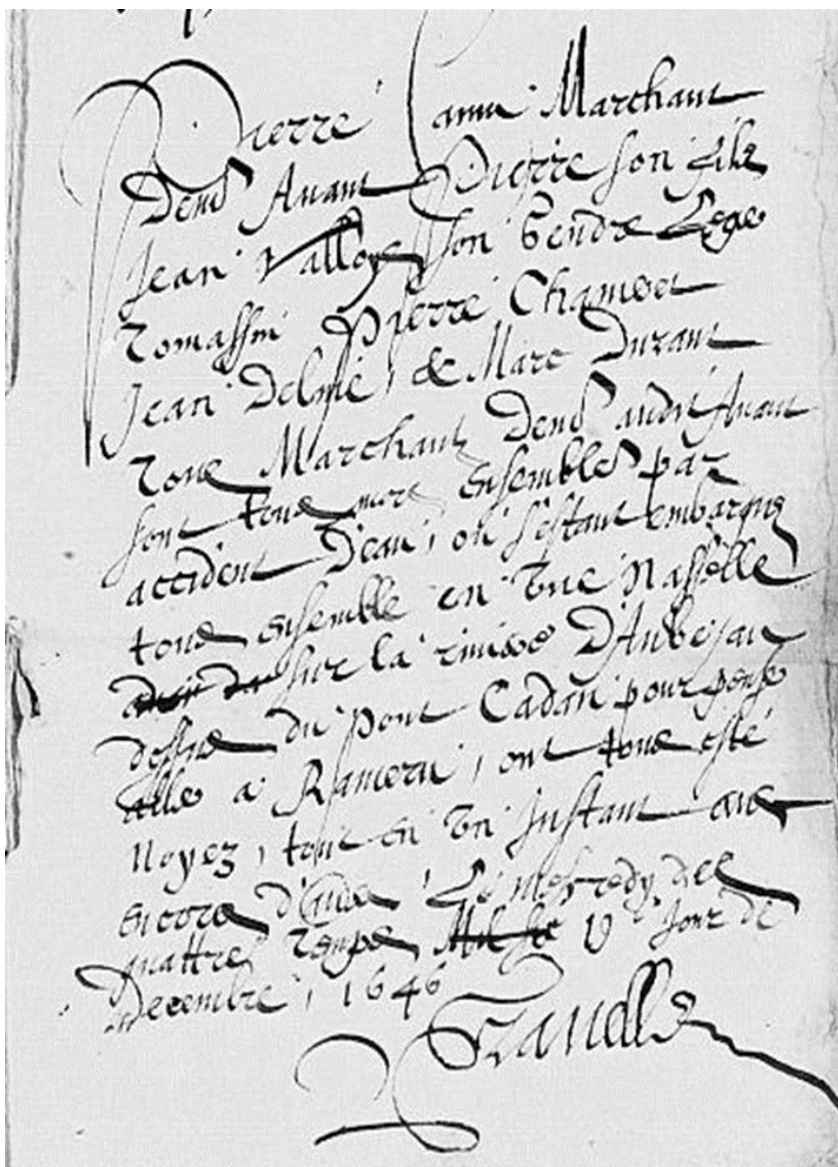 Pierre Camu Marchant
Dend Avant Pierre son filz
Jean Valloys son Gendre Lege
Tomassin Pierre Chamoet
Jean Delme, & Marc Durant
tous Marchants Dend Avant
sont tous mors ensembles par
accident d'eau, où s'estant embarqué
tous ensemble en une Nasselle
sur la riviere D'Aube, au
dessus du Pont Cadan pour pense
alle a Rameru, ont tous esté
Noyez, tout en un instant avec
encore d'autres Le mescredy des
quattre Temps V.e Jour de
Decembre, 1646